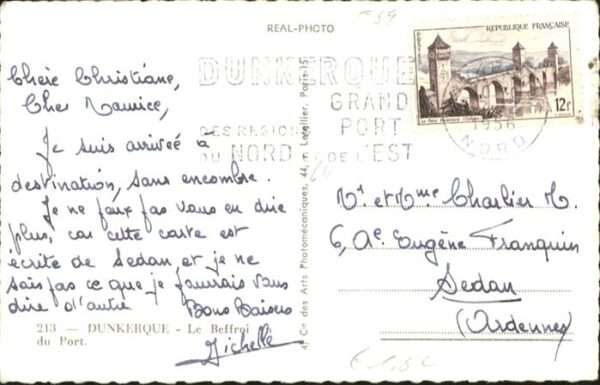 REAL-PHOTO
DUNKERQUE
GRAND
PORT
DES REGIONS
DU NORD ET DE L'EST
1956
NORD
POSTES
REPUBLIQUE FRANÇAISE
12F
Chère Christiane,
Cher Maurice,
Je suis arrivée à
destination, sans encombre.
Je ne peux pas vous en dire
plus, car cette carte est
écrite de Sedan et je ne
sais pas ce que je pourrais vous
dire d'autre
Bons Baisers
Michelle
213 — DUNKERQUE - Le Beffroi
du Port.
Cie des Arts Photomécaniques, 44, r. Letellier, Paris-15
Mr et Mme Charlier M.
6, Ae Eugène Franquin
Sedan
(Ardennes)